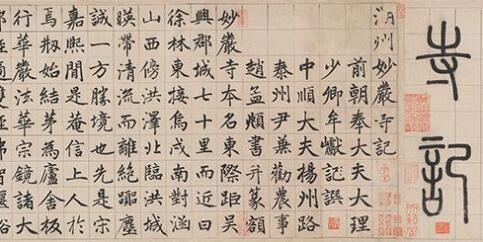 寺記
湖州妙嚴寺記
前朝奉大夫大理
少卿牟巘記譔
中順大夫楊州路
泰州尹兼勸農事
趙孟頫書并篆額
妙嚴寺本名東際距吳
興郡城七十里而近曰
徐林東接烏戍南對涵
山西傍洪澤北臨洪城
暎帶清流而離絕囂塵
誠一方勝境也先是宋
嘉熙間是菴信上人於
焉刱始結茅為廬舍板
行華嚴法華宗鏡諸大